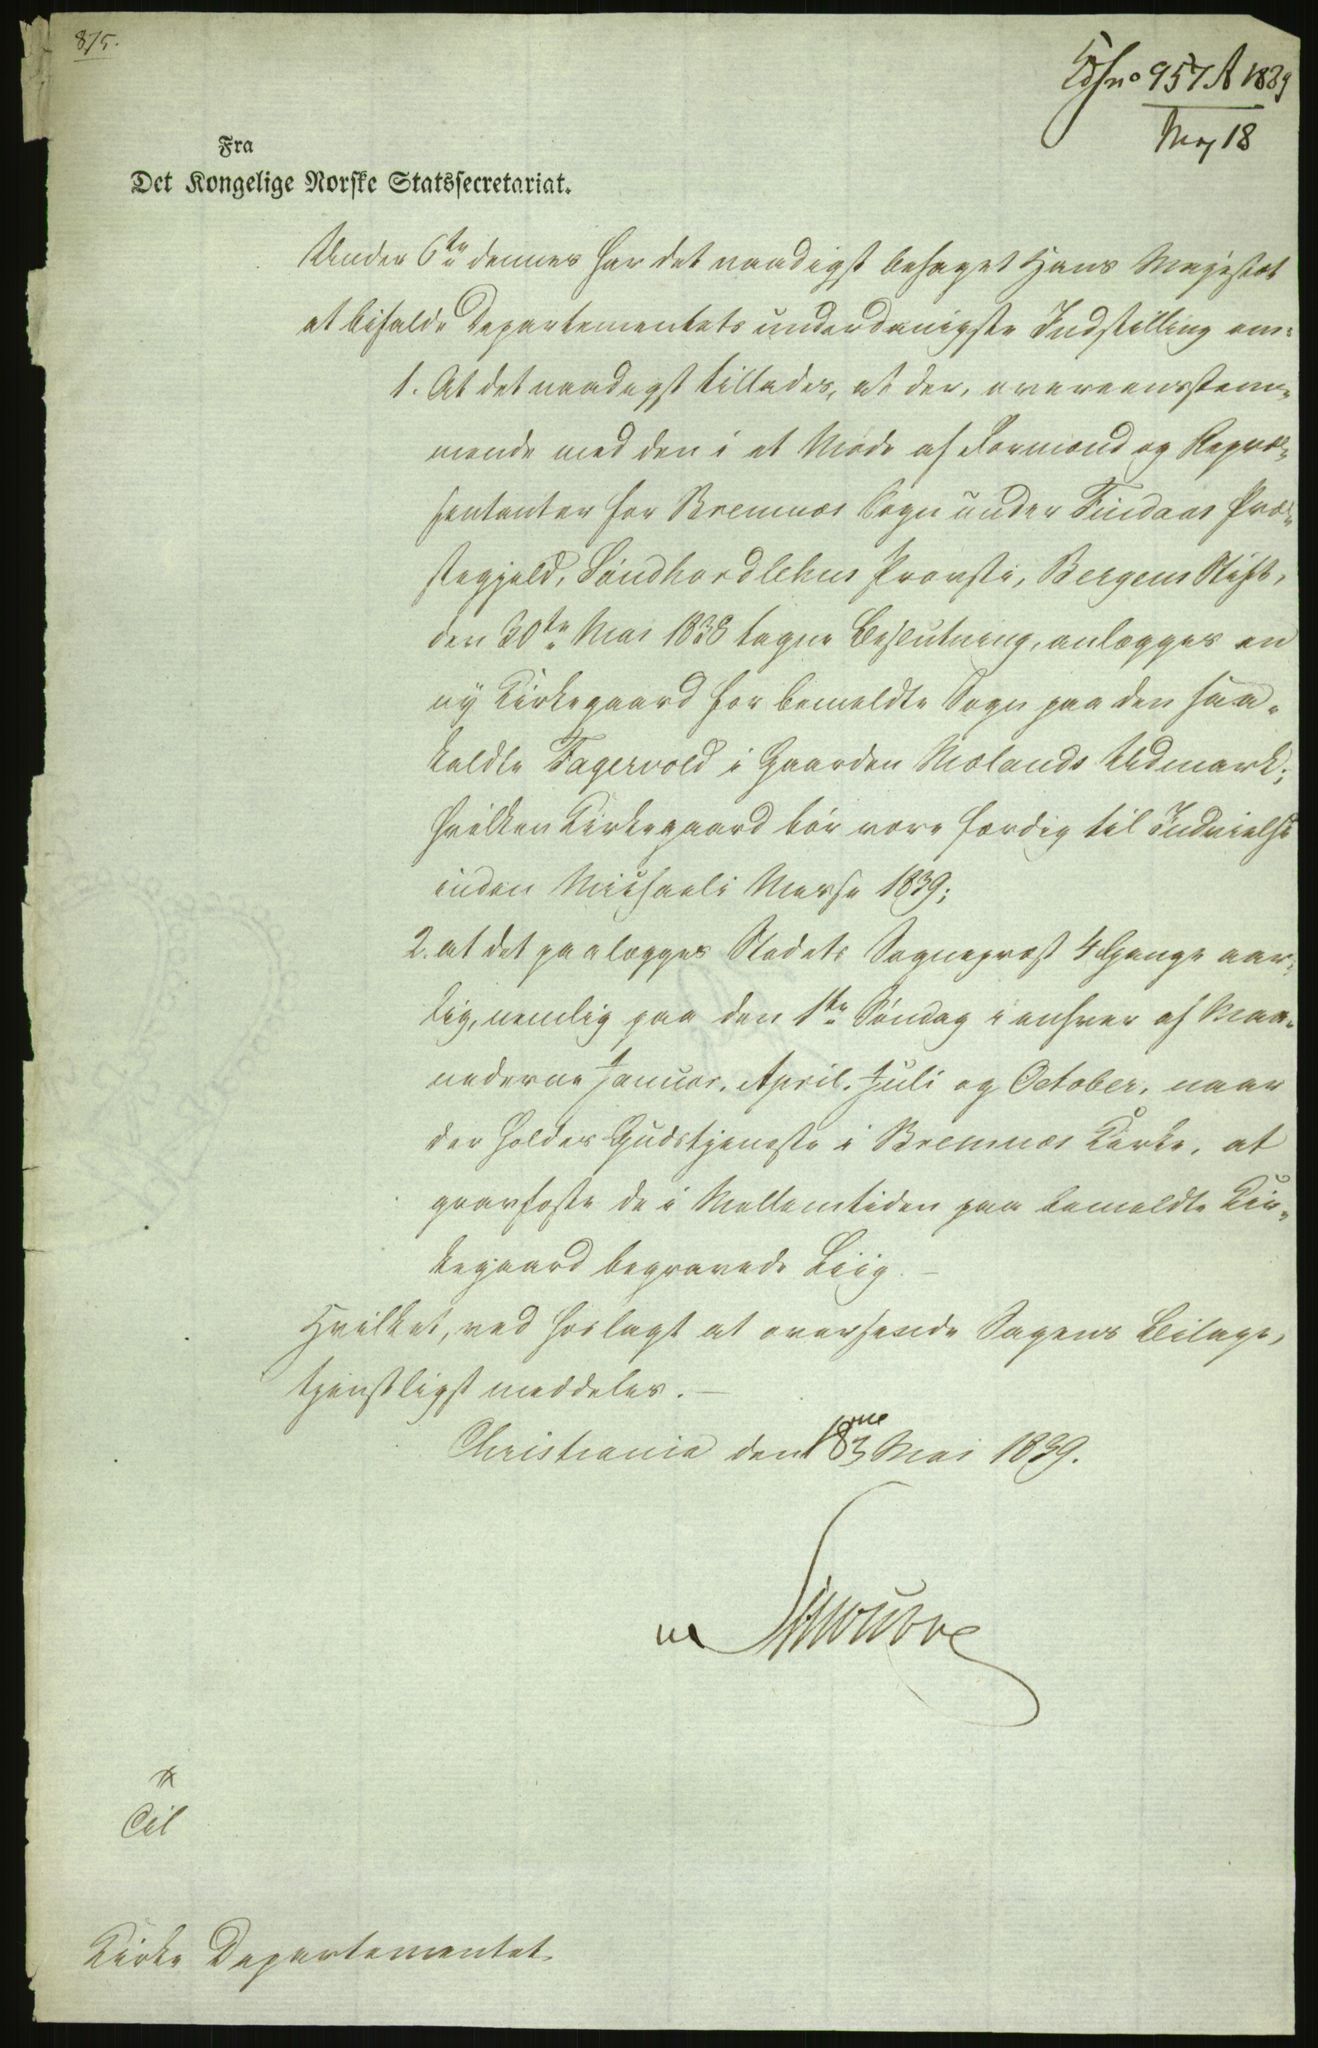 875.
No 957 A 1839
May 18
Fra
Det Kongelige Norske Statssecretariat.
Under 6te dennes har det naadigst behaget Hans Majestæt
at bifalde Departementets underdanigste Indstilling om:
1. At det naadigst tillades, at der, overeensstem-
mende med den i et Møde af Formænd og Repræ-
sentanter for Bremnæs Sogn under Findaas Præ-
stegjeld, Søndhordlehns Provsti, Bergens Stift,
den 30te Mai 1838 tagne Beslutning, anlægges en
ny Kirkegaard for bemeldte Sogn paa den saa-
kaldte Fagervold i Gaarden Mælands Udmark;
hvilken Kirkegaard bør være færdig til Indvielse
inden Michaeli Messe 1839;
2. at det paalægges Stedets Sognepræst 4 Gange aar-
lig, nemlig paa den 1te Søndag i enhver af Maa-
nederne Januar, April, Juli og October, naar
der holdes Gudstjeneste i Bremnæs Kirke, at
jordfæste de i Mellemtiden paa bemeldte Kir-
kegaard begravede Liig. —
Hvilket, ved hoslagt at oversende Sagens Bilage,
tjenstligst meddeles. —
Christiania den 18 Mai 1839.
Til
Kirke Departementet.